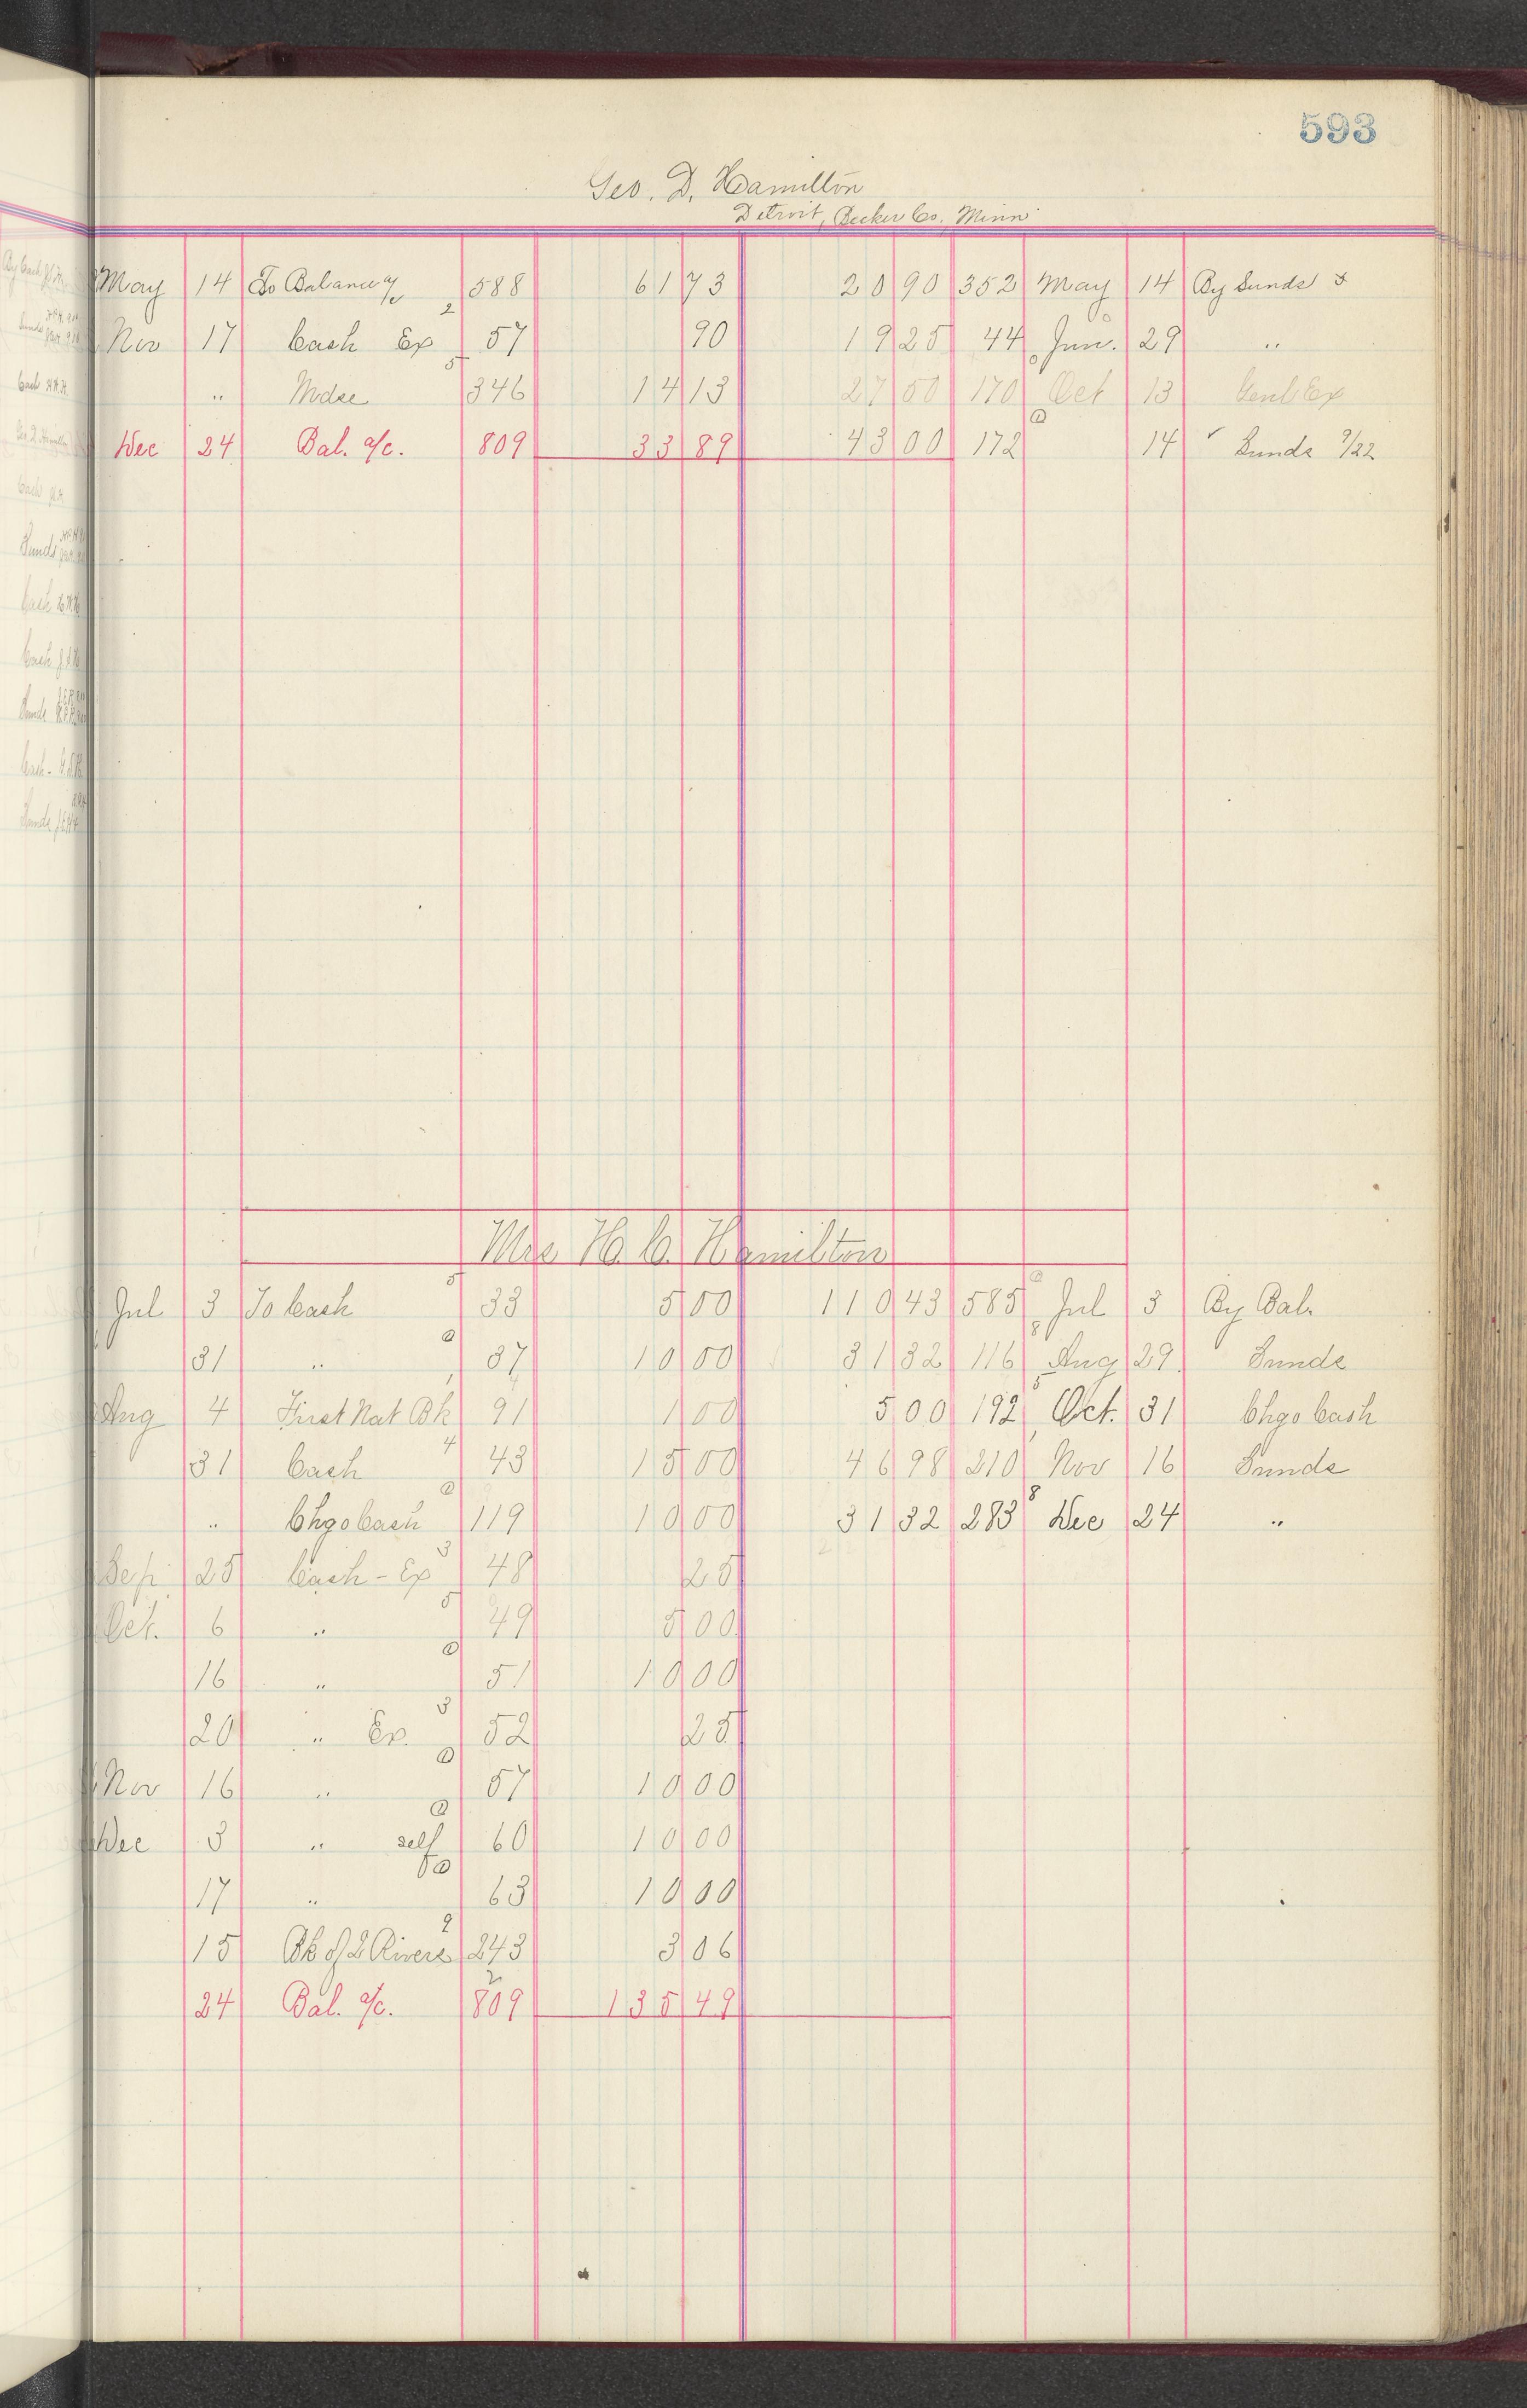 593
Geo. D. Hamilton
Detroit, Becker Co. Minn
May 14 To Balance a/c 588 61 73 20 90 352 May 14 By Sunds
Nov 17 Cash Ex 57 90 19 25 44 Jun. 29 "
" Mdse 346 14 13 27 50 170 Oct 13 Genl Ex
Dec 24 Bal. a/c. 809 33 89 43 00 172 14 ✓ Sunds 9/22
Mrs H. C. Hamilton
Jul 3 To Cash 33 5 00 110 43 585 Jul 3 By Bal.
31 " 37 10 00 31 32 116 Aug 29 Sunds
Aug 4 First Nat Bk 91 1 00 5 00 192 Oct. 31 Chgo Cash
31 Cash 43 15 00 46 98 210 Nov 16 Sunds
" Chgo Cash 119 10 00 31 32 283 Dec 24 "
Sep. 25 Cash - Ex 48 25
Oct. 6 " 49 5 00
16 " 51 10 00
20 " Ex. 52 25
Nov 16 " 57 10 00
Dec 3 " self 60 10 00
17 " 63 10 00
15 Bk of 2 Rivers 243 3 06
24 Bal. a/c. 809 135 49